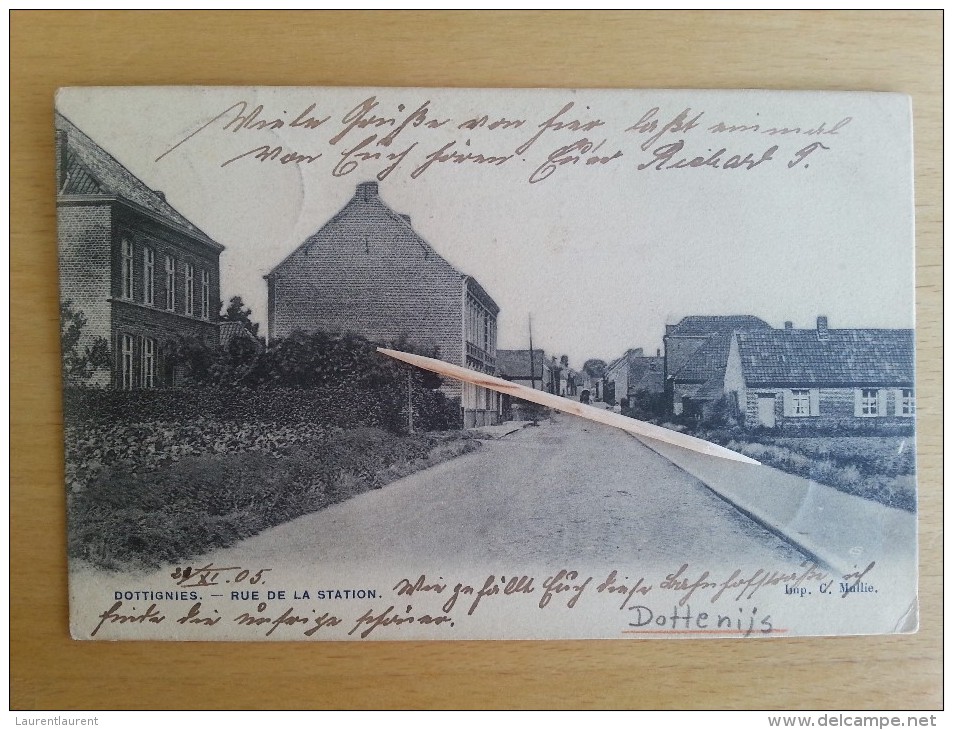 Viele Grüße von hier laßt einmal
von Euch hören. Euer Richard T.
29/XI. 05.
DOTTIGNIES. — RUE DE LA STATION.
Imp. C. Mullie.
Wie gefällt Euch diese Bahnhofstraße ich
finde die unsrige schöner.
Dottenijs
Laurentlaurent
www.delcampe.net